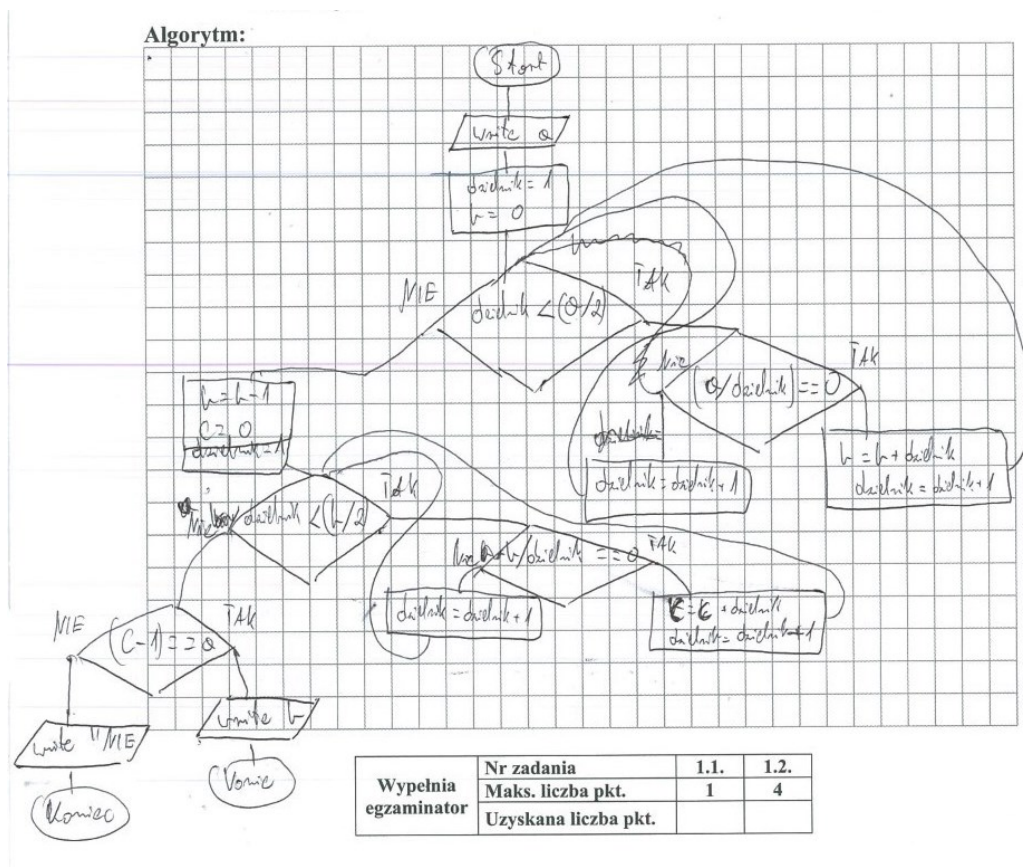 Algorytm:
Start
write a
dzielnik = 1
b = 0
NIE
dzielnik < (a/2)
TAK
Nie
(a/dzielnik) == 0
TAK
b = b - 1
C = 0
dzielnik = 1
dzielnik =
dzielnik = dzielnik + 1
b = b + dzielnik
dzielnik = dzielnik + 1
Nie
dzielnik < (b/2)
TAK
Nie
b/dzielnik == 0
TAK
dzielnik = dzielnik + 1
C = C + dzielnik
dzielnik = dzielnik + 1
NIE
(C-1) == a
TAK
write "NIE
write b
Koniec
Wypełnia
egzaminator
Nr zadania 1.1. 1.2.
Maks. liczba pkt. 1 4
Uzyskana liczba pkt.